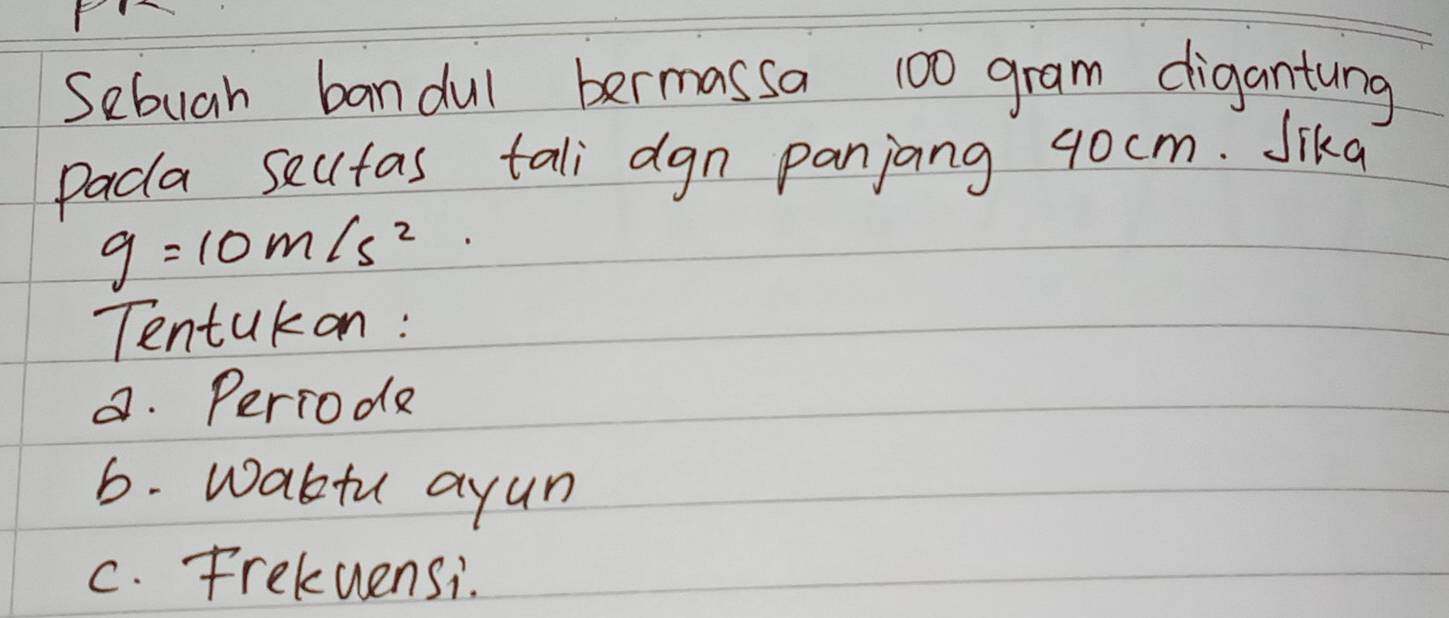 Sebuah bandul bermassa 100 gram digantung
pada seutas tali dgn panjang 40cm. Jika
g = 10 m/s².
Tentukan :
a. Periode
b. Waktu ayun
c. Frekuensi.